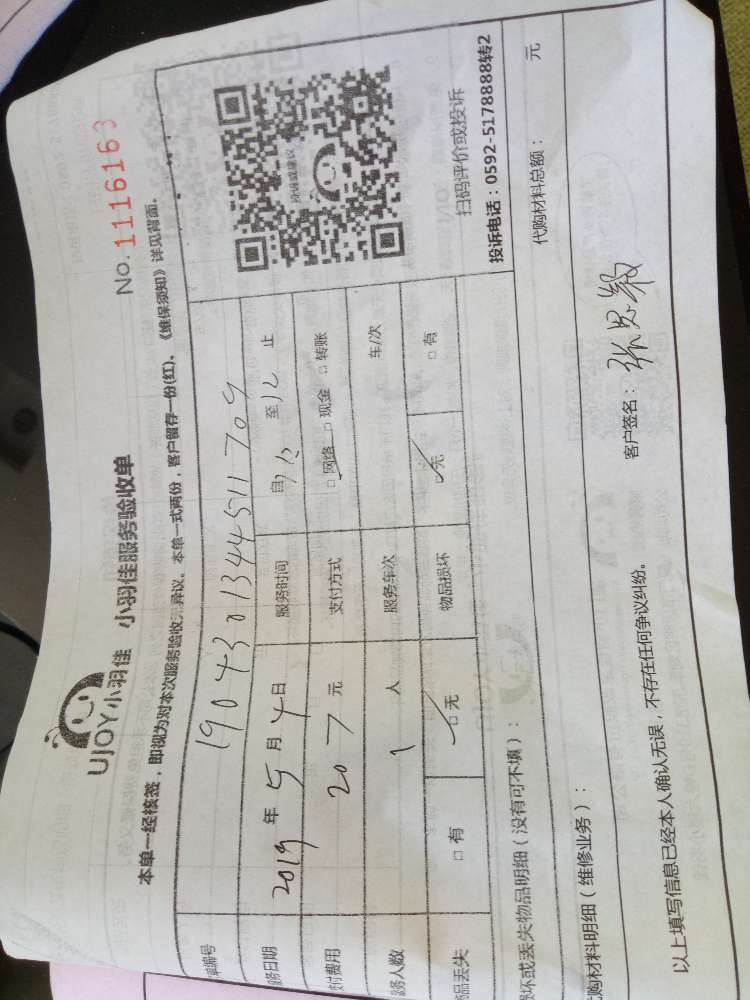 UJOY小羽佳 小羽佳服务验收单
No.1116163
本单一经核签，即视为对本次服务验收无异议。本单一式两份，客户留存一份(红)、《维保须知》详见背面。
单编号 190430134451170９
务日期 2019 年 5 月 4 日 服务时间 自 至12 止
付费用 207 元 支付方式 □网络 □现金 □转账
务人数 1 人 服务车次 车/次
物品丢失 □有 □无 物品损坏 □无 □有
扫码评价或投诉
投诉电话：0592-5178888转2
损坏或丢失物品明细（没有可不填）：
代购材料明细（维修业务）： 代购材料总额： 元
以上填写信息已经本人确认无误，不存在任何争议纠纷。 客户签名：